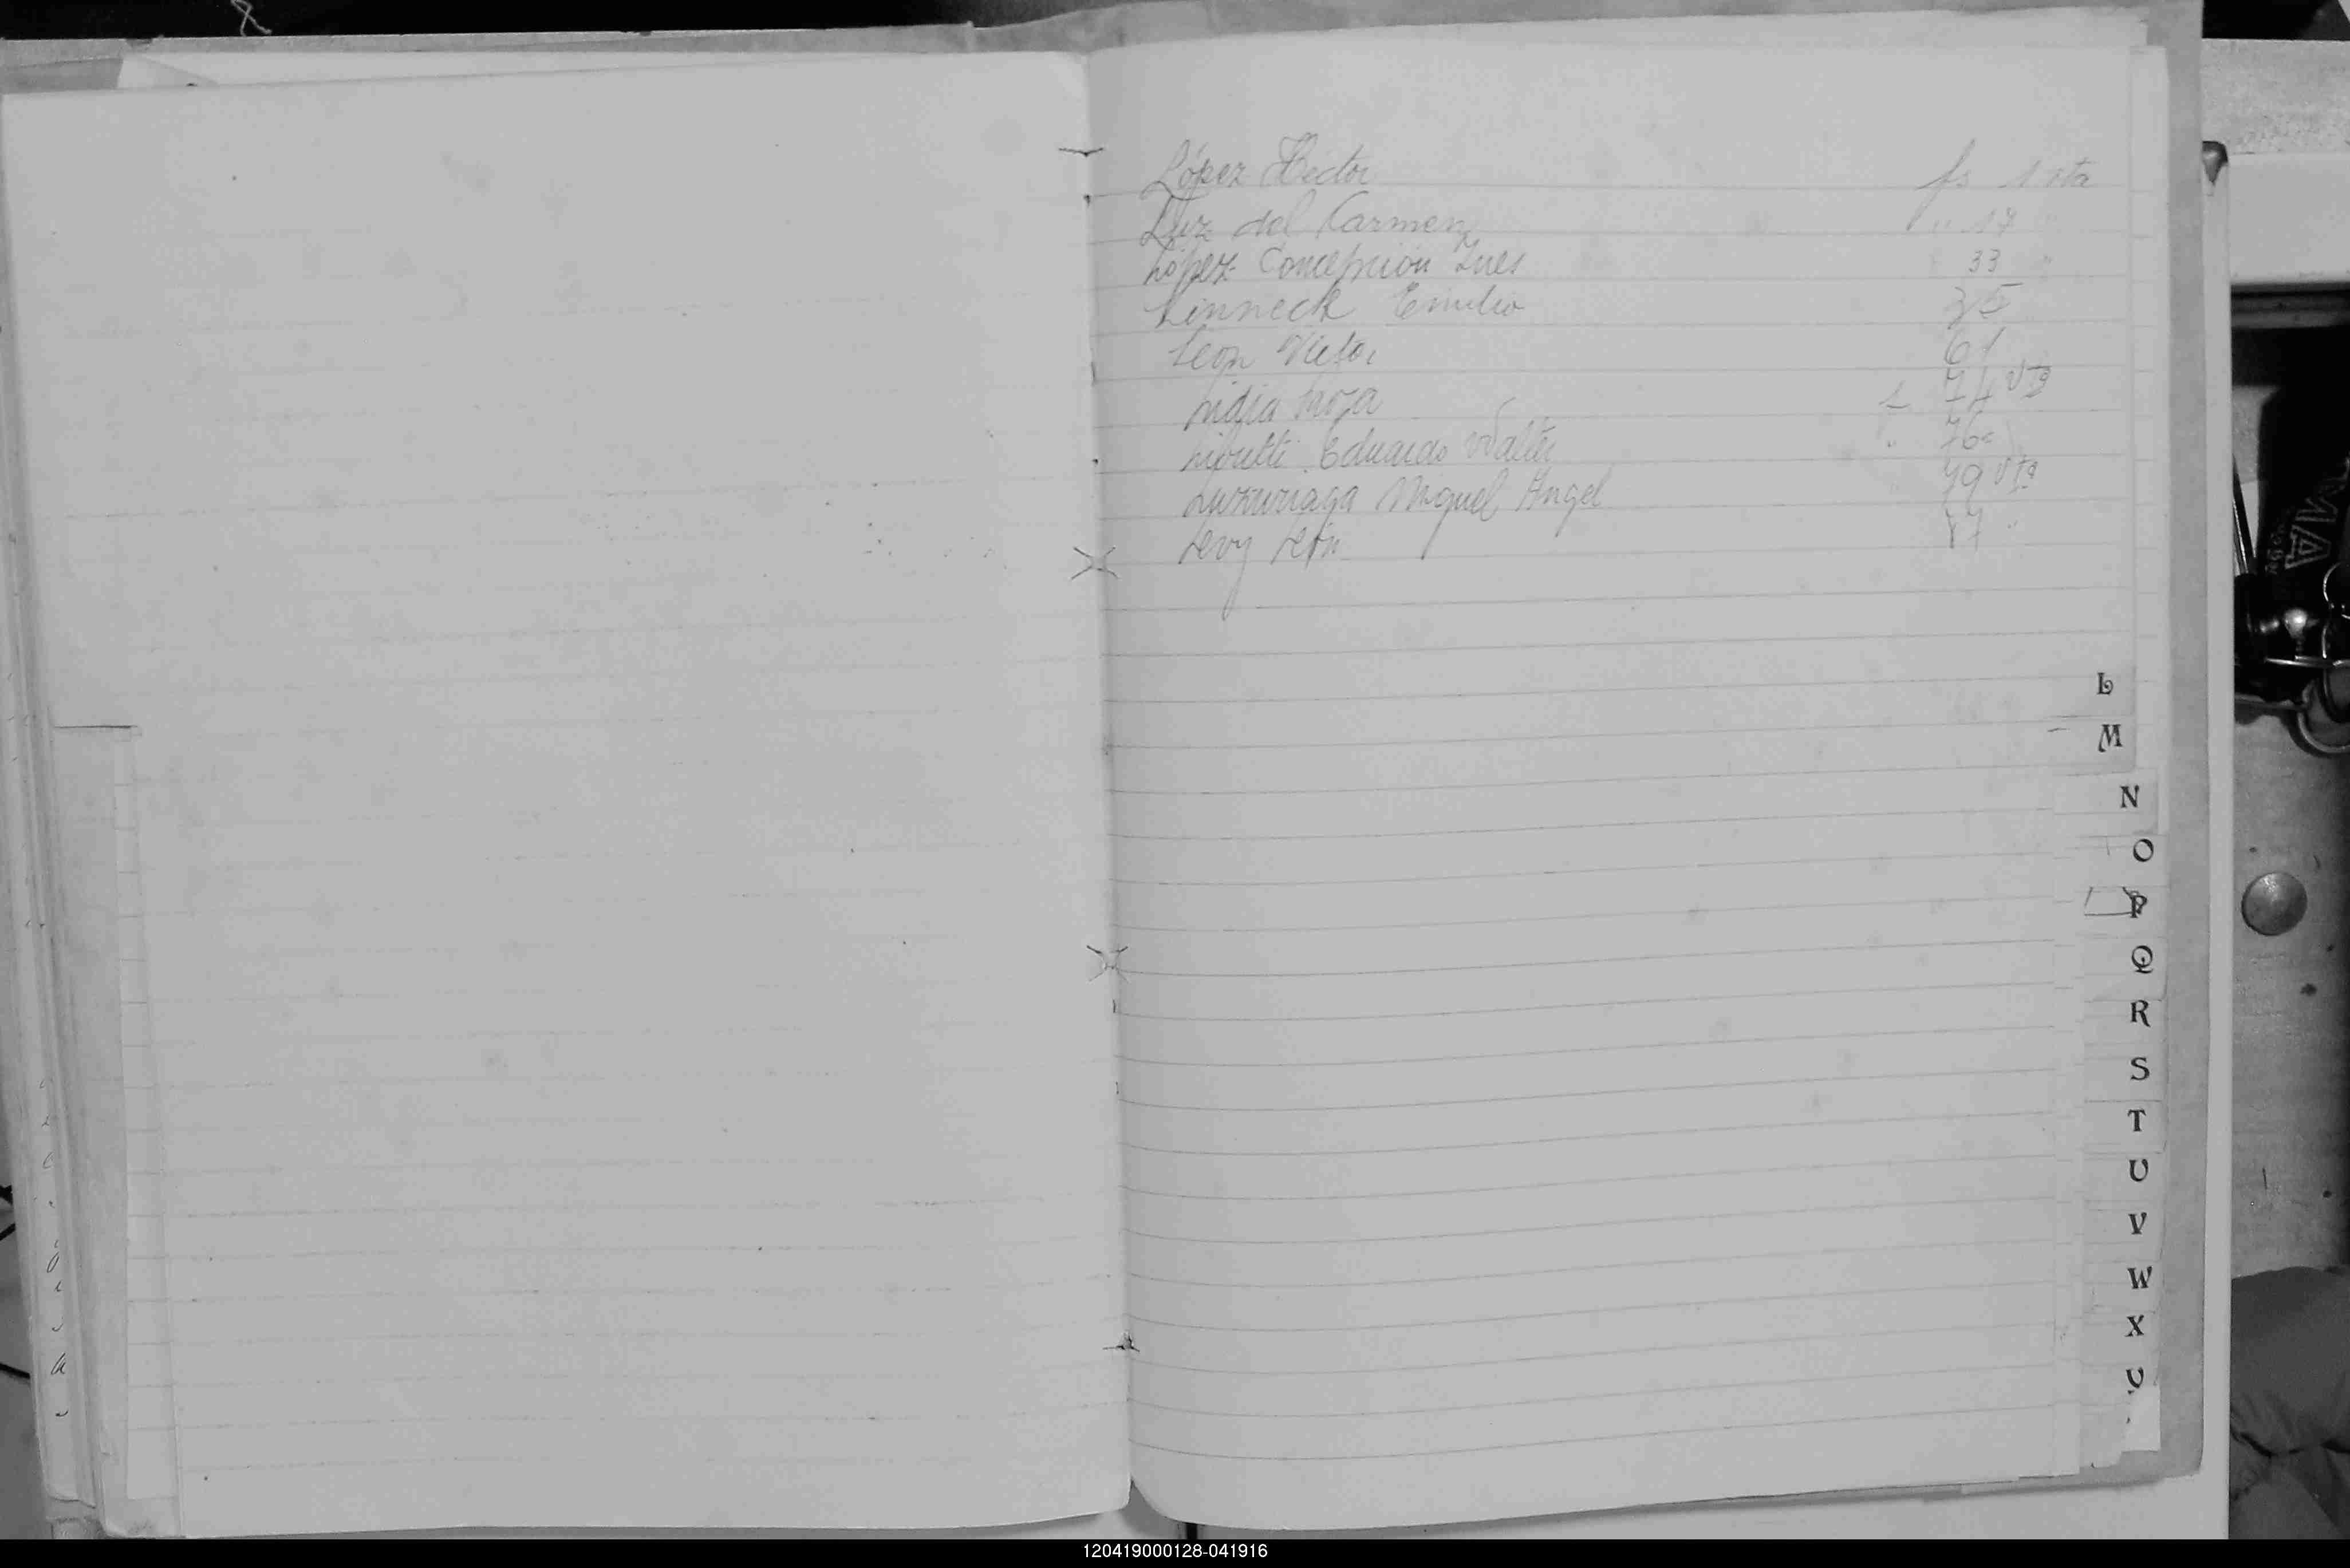 López Hector fs 1 vta
Luz del Carmen " 17 "
López Concepcion Ines 33 "
Linneck Emilio 35
Leon Victor 61
Lidia 74 vta
Eduardo Walter " 76
Luzuriaga Miguel Angel 79 vta
Levy León 87 "
L
M
N
O
P
Q
R
S
T
U
V
W
X
120419000128-041916